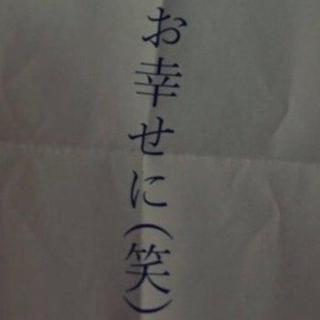 お幸せに(笑)